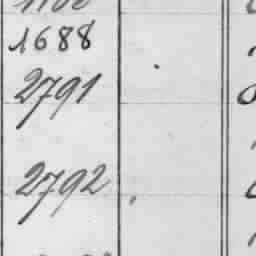 1688
2791
2792